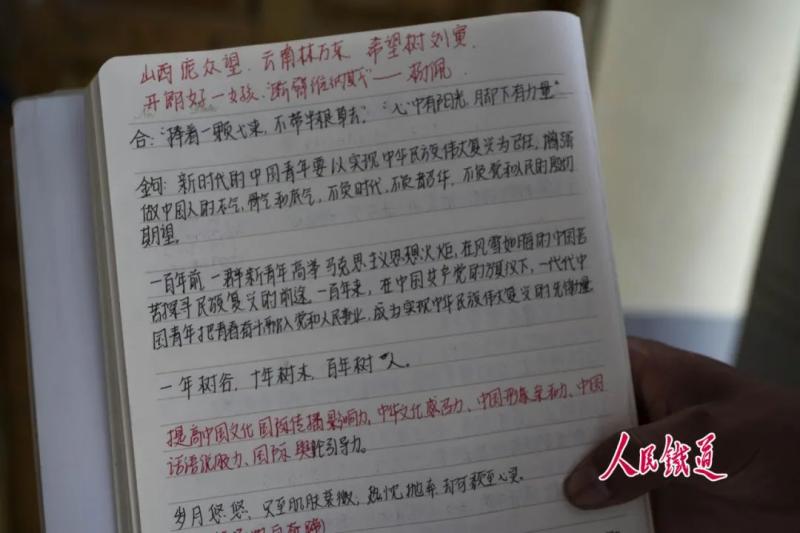 山西庞众望、云南林万东、希望树刘寅、
开朗好一女孩、"断臂维纳斯"——杨佩
合:"捧着一颗心来,不带半根草去""心中有阳光,脚下有力量"
金句:新时代的中国青年要以实现中华民族伟大复兴为己任,增强
做中国人的志气、骨气和底气,不负时代,不负韶华,不负党和人民的殷切
期望。
一百年前,一群新青年高举马克思主义思想火炬,在风雨如晦的中国苦
苦探寻民族复兴的前途。一百年来,在中国共产党的旗帜下,一代代中
国青年把青春奋斗融入党和人民事业,成为实现中华民族伟大复兴的先锋力量
一年树谷,十年树木,百年树人。
提高中国文化国际传播影响力、中华文化感召力、中国形象亲和力、中国
话语说服力、国际舆论引导力。
岁月悠悠,只至肌肤衰微;热忱抛弃却可颓至心灵
人民铁道